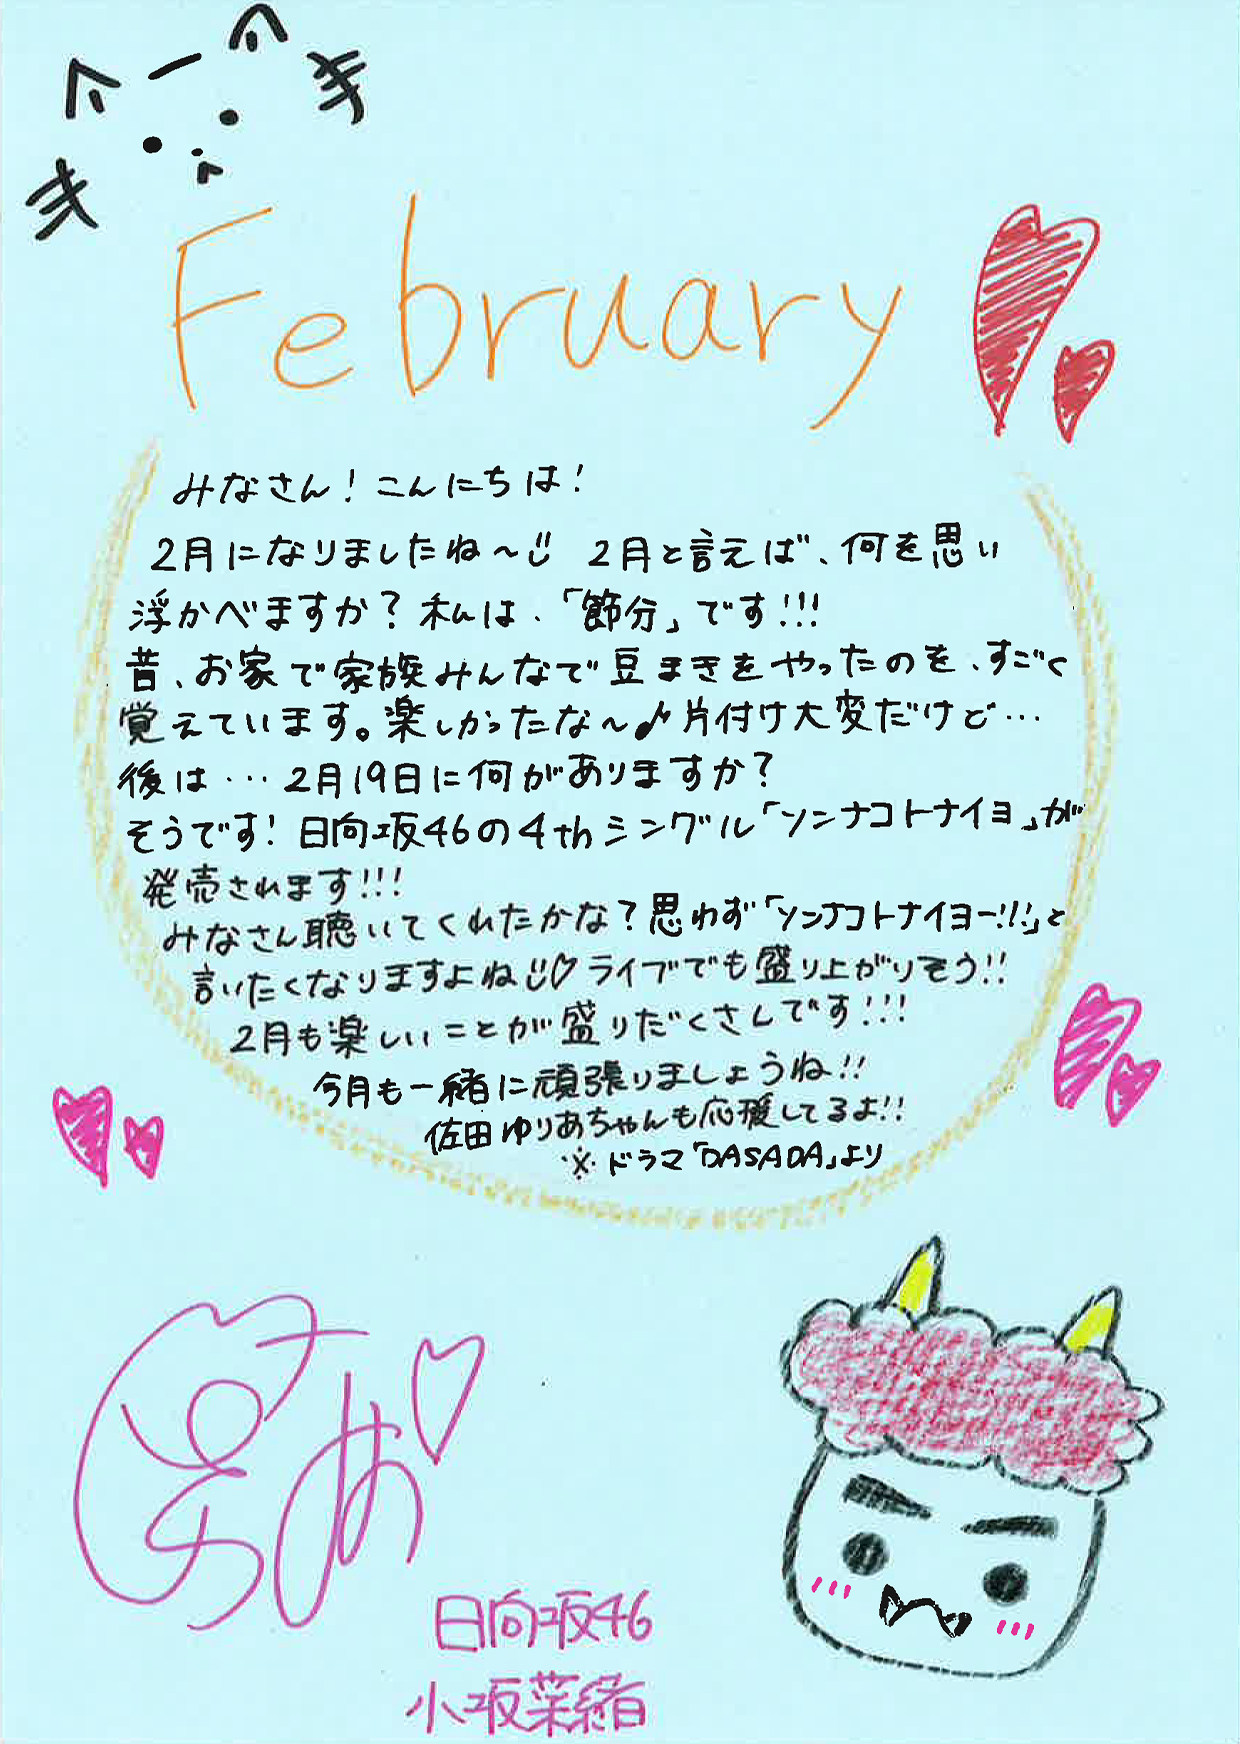 February
みなさん！こんにちは！
2月になりましたね～ 2月と言えば、何を思い
浮かべますか？私は、「節分」です!!!
昔、お家で家族みんなで豆まきをやったのを、すごく
覚えています。楽しかったな～♪片付け大変だけど…
後は…2月19日に何がありますか？
そうです！日向坂46の4thシングル「ソンナコトナイヨ」が
発売されます!!!
みなさん聴いてくれたかな？思わず「ソンナコトナイヨー!!!」と
言いたくなりますよね♡ライブでも盛り上がりそう!!
2月も楽しいことが盛りだくさんです!!!
今月も一緒に頑張りましょうね!!
佐田ゆりあちゃんも応援してるよ!!
※ドラマ「DASADA」より
日向坂46
小坂菜緒